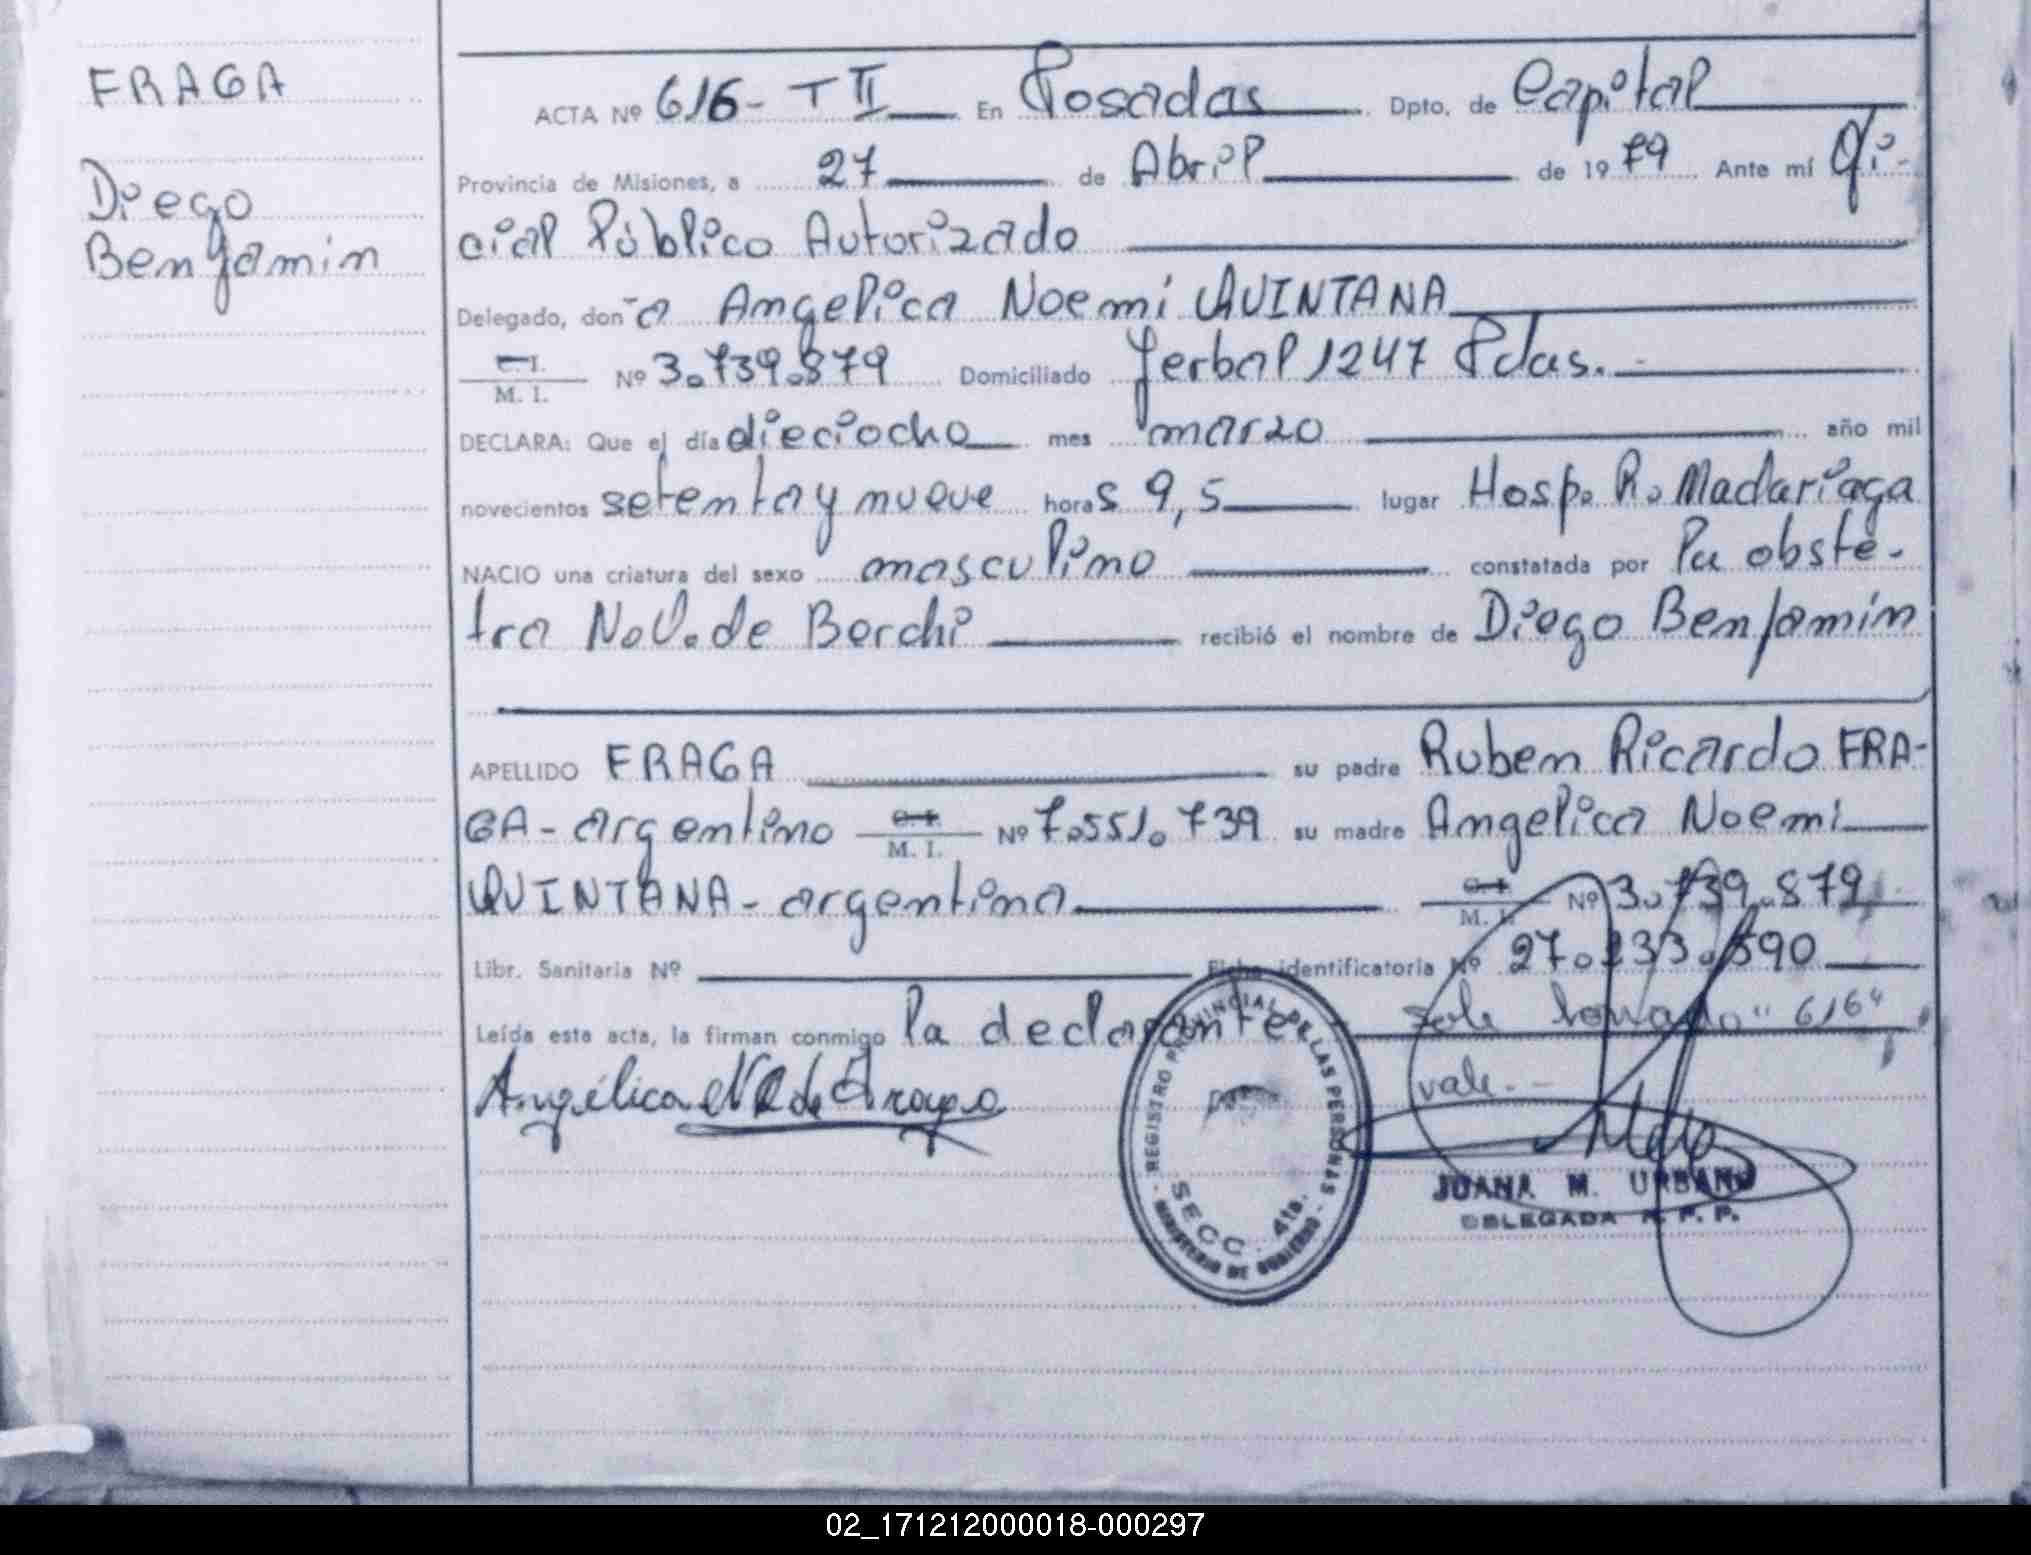 FRAGA
Diego
Benjamin
ACTA Nº 616- T II En Posadas Dpto. de Capital
Provincia de Misiones, a 27 de Abril de 1979 Ante mí Ofi-
cial Público Autorizado
Delegado, doña Angelica Noemi QUINTANA
C. I. / M. I. Nº 3.739.879 Domiciliado Yerbal 1247 Pdas.-
DECLARA: Que el día dieciocho mes marzo año mil
novecientos setenta y nueve horas 9,5 lugar Hosp. R. Madariaga
NACIO una criatura del sexo masculino constatada por la obste-
tra N.V. de Borchi recibió el nombre de Diego Benjamín
APELLIDO FRAGA su padre Ruben Ricardo FRA-
GA - argentino C. I. / M. I. Nº 7.551.739 su madre Angelica Noemi
QUINTANA - argentina C. I. / M. I. Nº 3.739.879
Libr. Sanitaria Nº Ficha identificatoria Nº 27.233.590
Leída esta acta, la firman conmigo la declarante "616"
vale.-
Angélica
REGISTRO PROVINCIAL DE LAS PERSONAS
SECC. 4ta.
MINISTERIO DE GOBIERNO
JUANA M. URBAN
DELEGADA R. P. P.
02_171212000018-000297